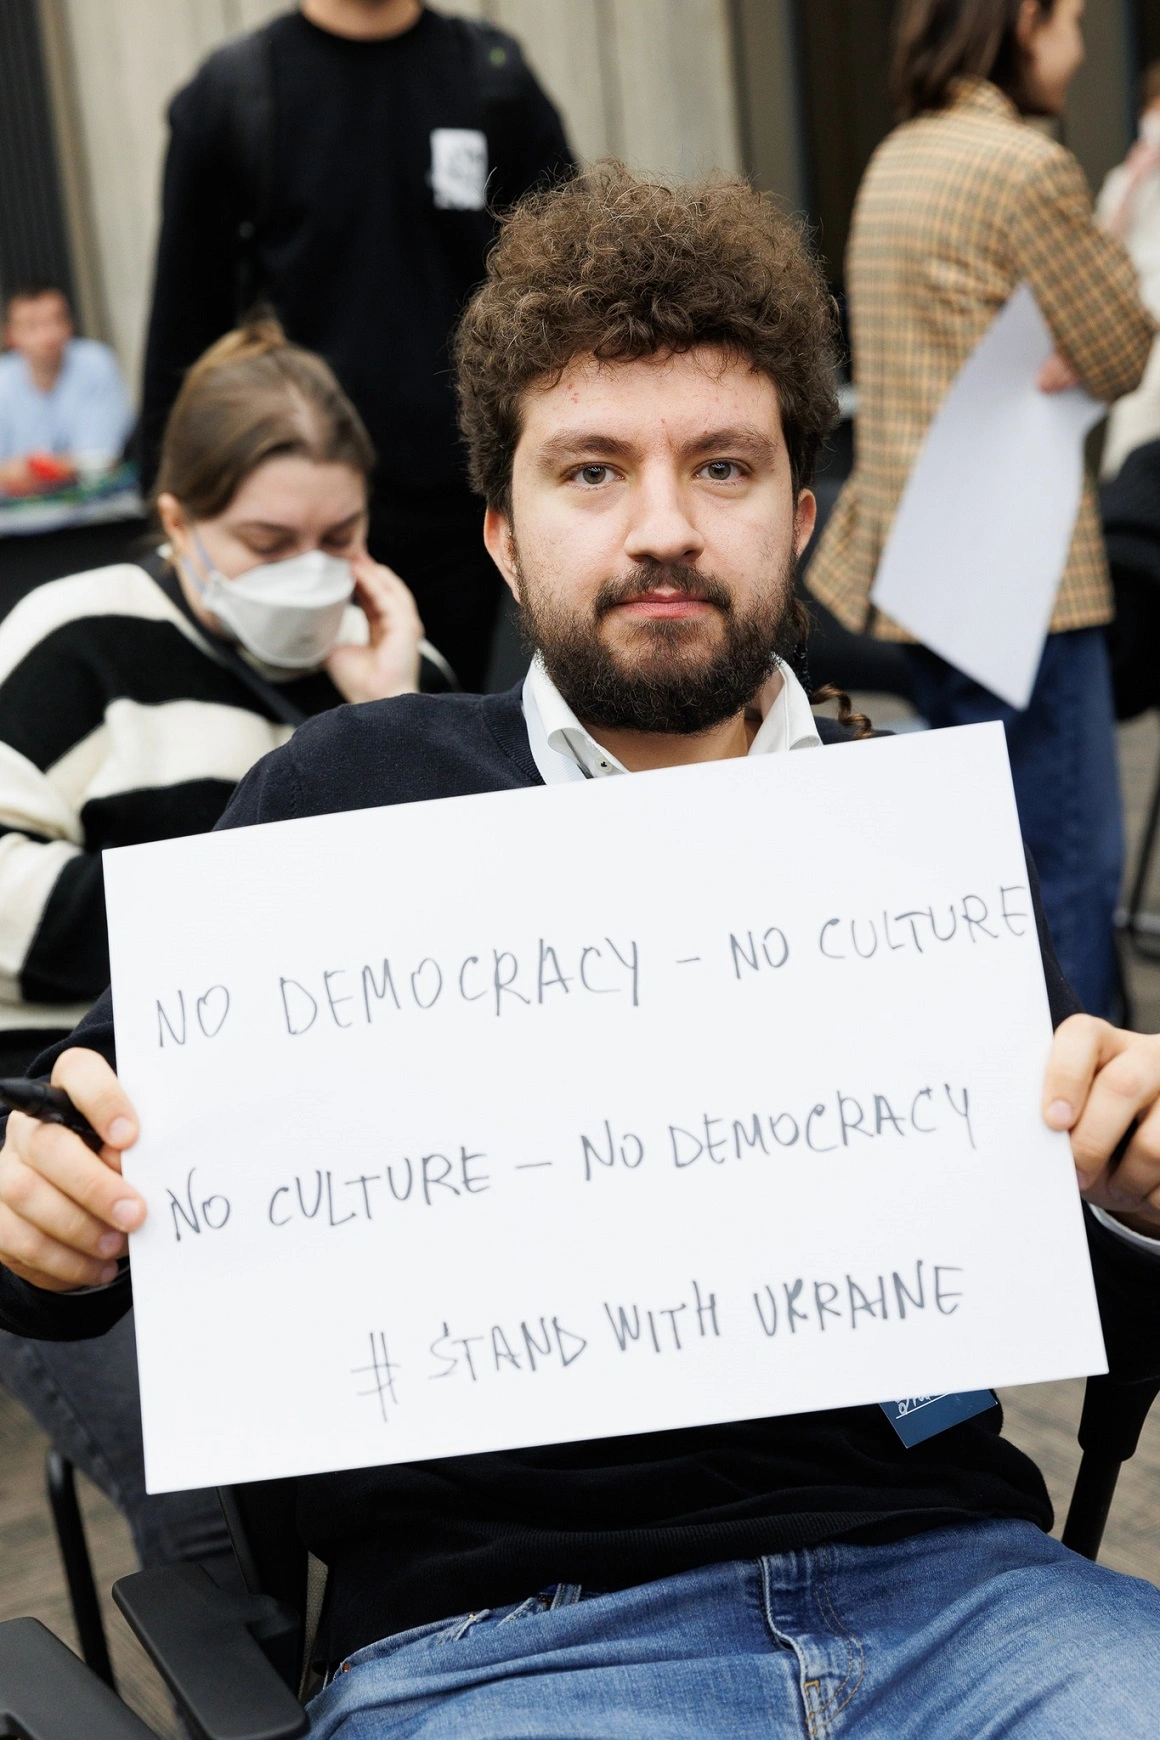 NO DEMOCRACY - NO CULTURE
NO CULTURE - NO DEMOCRACY
# STAND WITH UKRAINE